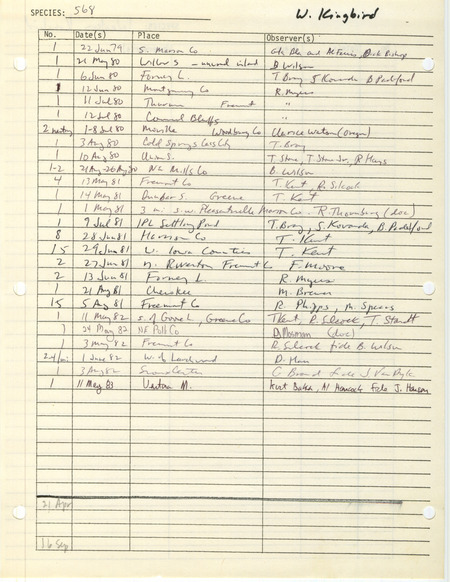 SPECIES: 568 W. Kingbird
No. Date(s) Place Observer(s)
1 22 Jun 79 S. Marion Co
1 21 May 80 Wilson S - unusual inland B Wilson
1 6 Jun 80 Forney L. T. Bray, S Kovanda, B Padelford
1 12 Jun 80 Montgomery Co R. Myers
1 11 Jul 80 Thurman Fremont "
1 12 Jul 80 Council Bluffs "
2 nesting 1-8 Jul 80 Moville Woodbury Co
1 3 Aug 80 Cold Springs T. Bray
1 10 Aug 80 Union S. T. Stone, T. Stone Jr, R Myers
1-2 NE Mills Co B. Wilson
4 13 May 81 Fremont Co T. Kent, R. Silcock
1 14 May 81 Dunbar S. Greene T. Kent
1 1 May 81 3 mi s.w. Pleasantville Marion Co. - R. Thornburg (doc)
1 9 Jul 81 IPL Settling Pond T. Bray, S. Kovanda, B. Padelford
8 28 Jun 81 Harrison Co T. Kent
15 29 Jun 81 W. Iowa Counties T. Kent
2 27 Jun 81 n. Riverton Fremont Co F. Moore
2 13 Jun 81 Forney L. R. Myers
1 21 Aug 81 Cherokee M. Brewer
15 5 Aug 81 Fremont Co R. Phipps, M. Spears
1 11 May 82 S. of Goose L, Greene Co T Kent, R. Silcock, T Staudt
1 24 May 82 NE Polk Co (doc)
1 3 May 82 Fremont Co R. Silcock fide B. Wilson
1 June 82 W. of Larchwood
3 Aug 82 Sioux Center fide J Van Dyk
1 11 May 83 Ventura M. Al Hancock fide J. Hansen
21 Apr
16 Sep